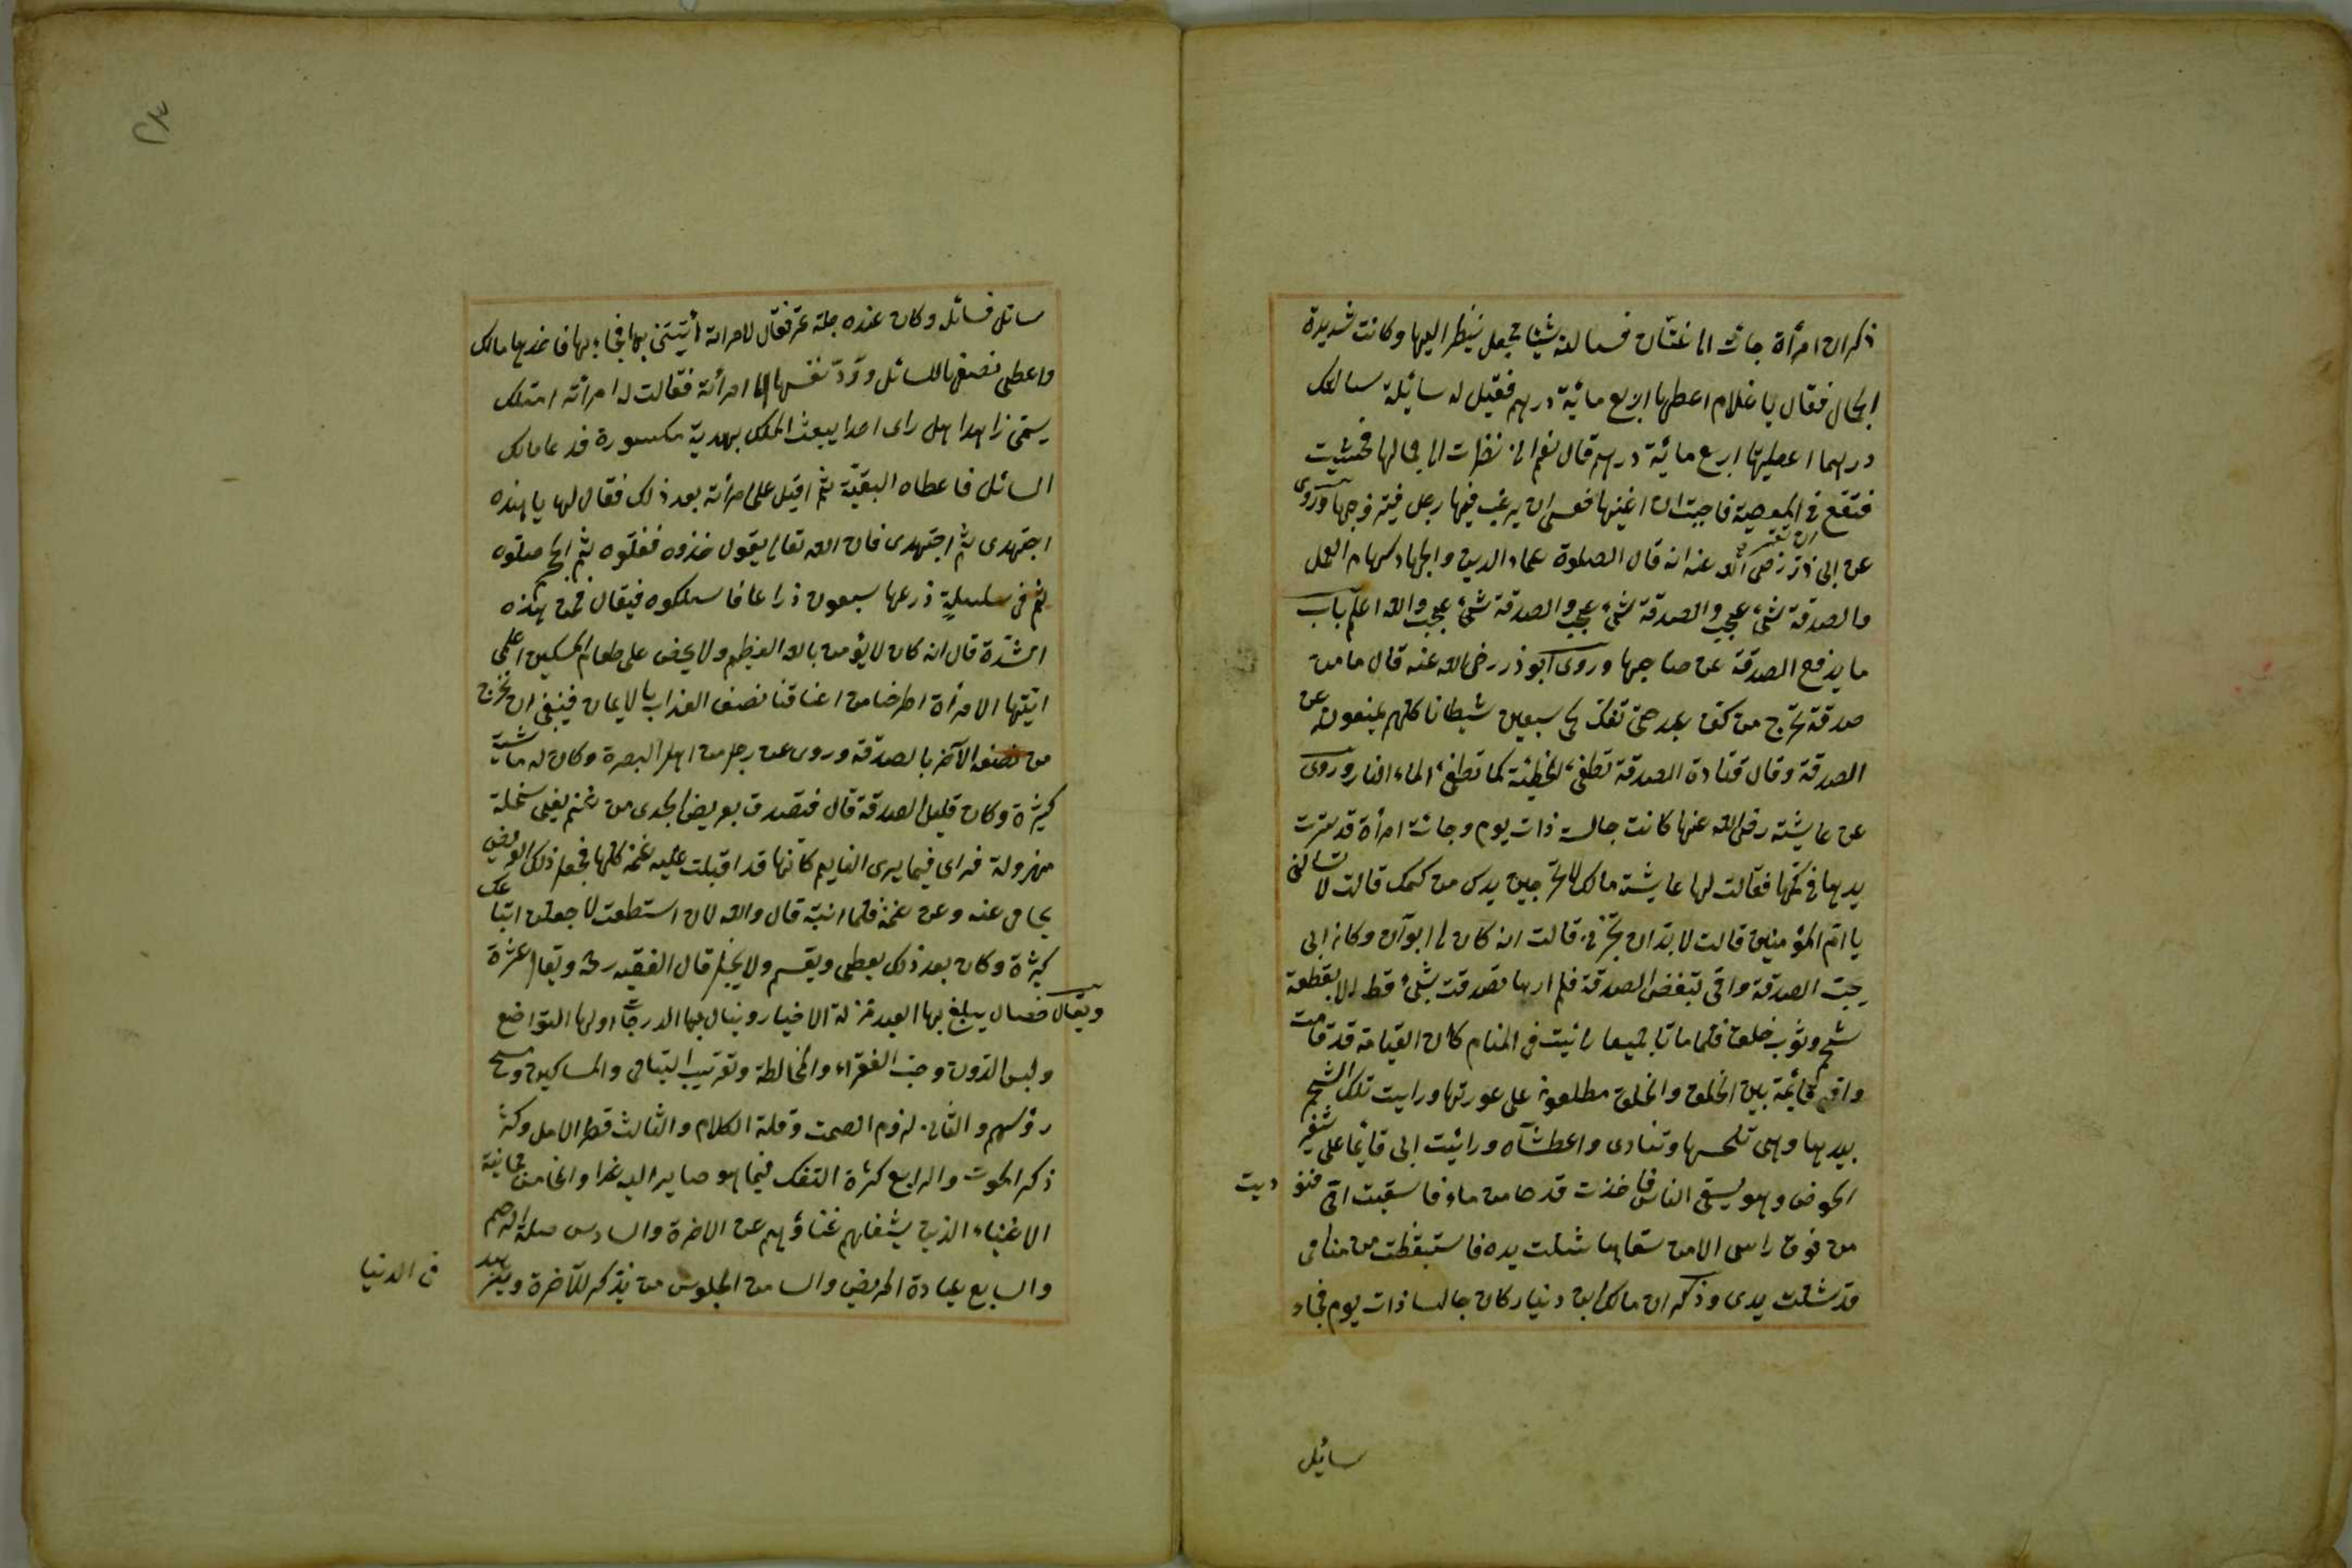 ذكر ان امرأة جائت الى غسّان فسالته شيئا فجعل ينظر اليها وكانت شديدة
الجمال فقال يا غلام اعطها اربع مائية درهم فقيل له سائلة سالتك
درهما اعطيتها اربع مائية درهم قال نعم انى نظرت الى جمالها فخشيت
فتقع فى المعصية فاحببت ان اغنيها فعسى ان يرغب فيها رجل فيتزوجها وروى
عن ابى ذر رضى الله عنه انه قال الصلوة عماد الدين والجهاد سنام العمل
والصدقة شئ عجيب والصدقة شئ عجيب والصدقة شئ عجيب والله اعلم باب
ما يدفع الصدقة عن صاحبها وروى ابو ذر رضى الله عنه قال ما من
صدقة تخرج من كف عبد حتى تفك لحى سبعين شيطانا كلهم يمنعونه عن
الصدقة وقال قتادة الصدقة تطفئ الخطيئة كما تطفئ الماء النار وروى
عن عايشة رضى الله عنها كانت جالسة ذات يوم وجائت امرأة قد سترت
يدها فى كمها فقالت لها عايشة مالك لا تخرجين يدك من كمك قالت لا تسالنى
يا ام المؤمنين قالت لا بدّ ان تخبرنى قالت انه كان لى ابوان وكان ابى
يحب الصدقة وامى تبغض الصدقة فلم ارها تصدقت بشئ قط الا بقطعة
شحم وثوب خلق فلما ماتا جميعا رأيت فى المنام كان القيامة قد قامت
وامى قائمة بين الخلق والخلق مطلعون على عورتها ورايت تلك الشحم
بيدها وهى تلحسها وتنادى واعطشاه ورأيت ابى قائما على شفير
الحوض وهو يسقى الناس فاخذت قدحا من ماء فاسقيت امى فنوديت
من فوق راسى الا من سقاها شلت يده فاستيقظت من منامى
قد شلت يدى وذكر ان مالك ابن دينار كان جالسا ذات يوم فجاء
سايل
سائل فسائله وكان عنده جلة تمر فقال لامراته أيتينى بها فجاءبها فاخذها مالك
واعطى نصفها للسائل وردّ نصفها الى امرأته فقالت له امرأته امثلك
يسمى زاهدا هل راى احدا يبعث الملك بهدية مكسورة فدعا مالك
السائل فاعطاه البقيّة ثم اقبل على امرأته بعد ذلك فقال لها يا هذه
اجتهدى ثم اجتهدى فان الله تعالى يقول خذوه فغلوه ثم الجحيم صلوه
ثم فى سلسلة ذرعها سبعون ذراعا فاسلكوه فيقال فمن هذه
الشدة قال انه كان لا يؤمن بالله العظيم ولا يحض على طعام المسكين اعلمى
ايتها الامرأة اطرحنا من اعناقنا نصف العذاب بالايمان فينبغى ان نخرج
من نصفه الآخر بالصدقة وروى عن رجل من اهل البصرة وكان له ماشية
كثيرة وكان قليل الصدقة قال فتصدق بعريض الجدى من غنم يعنى سخلة
مهزولة فراى فيما يرى النايم كانها قد اقبلت عليه غنمه كلها فجعل ذلك العريض
يحامى عنه وعن غنمه فلما انتبه قال والله لان استطعت لاجعلن اتباعك
كثيرة وكان بعد ذلك يعطى ويقسم ولا يبخل قال الفقيه رحمه
ويقال خصال يبلغ بها العبد منزلة الاخيار وينال بها الدرجات اولها التواضع
ولبس الدون وحب الفقراء والمخالطة وتقريب اليتامى والمساكين ومسح
رؤسهم والثانى لزوم الصمت وقلة الكلام والثالث قصر الامل وكثرة
ذكر الموت والرابع كثرة التفكر فيما هو صاير اليه غدا والخامس مجانبة
الاغنياء الذين يشغلهم غناؤهم عن الاخرة والسادس صلة الرحم
والسابع عيادة المريض والسامن الجلوس من يذكر للآخرة ويزهد
فى الدنيا